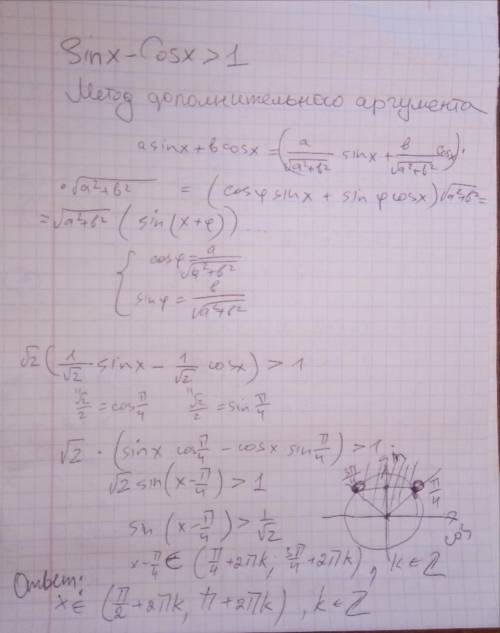 Sinx - Cosx > 1
Метод дополнительного аргумента
a sinx + b cosx = (a/√(a²+b²) sinx + b/√(a²+b²) cosx) ·
· √(a²+b²) = (cosφ sinx + sinφ cosx) √(a²+b²) =
= √(a²+b²) (sin(x+φ)) ...
{ cosφ = a/√(a²+b²)
sinφ = b/√(a²+b²)
√2 (1/√2 sinx - 1/√2 cosx) > 1
√2/2 = cos π/4 √2/2 = sin π/4
√2 · (sinx cos π/4 - cosx sin π/4) > 1
√2 sin(x - π/4) > 1
3π/4 π/4
sin (x - π/4) > 1/√2
cos
x - π/4 ∈ (π/4 + 2πk; 3π/4 + 2πk), k ∈ Z
Ответ:
x ∈ (π/2 + 2πk, π + 2πk), k ∈ Z